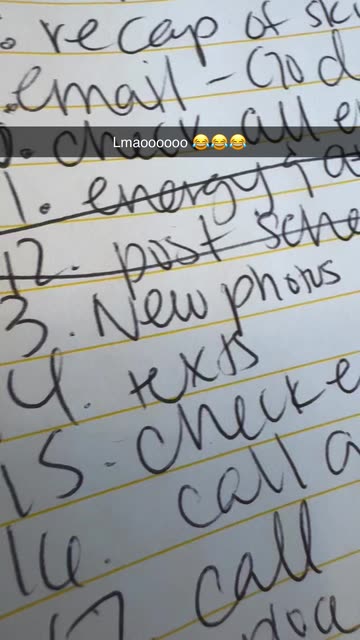 recap of sk
email - God
check all e
Lmaoooooo 😂😂😂
1. energy & a
12. post sche
3. New photos
4. texts
15. checke
call a
16. call
17